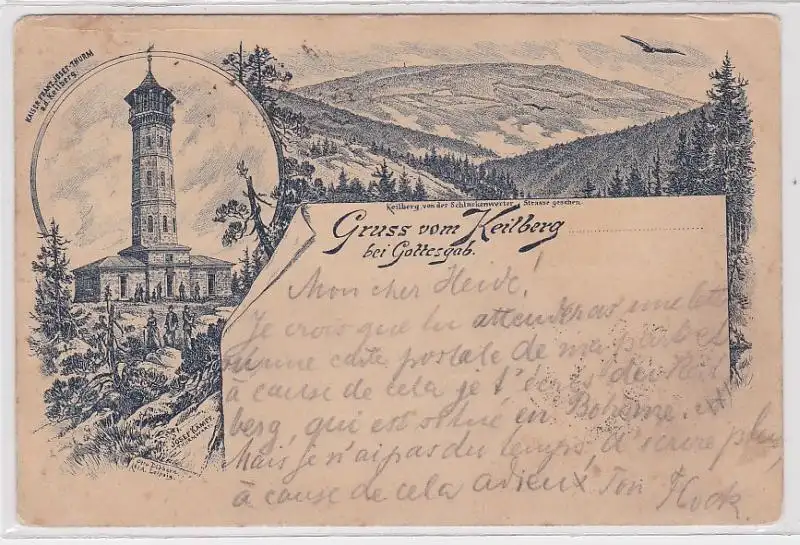 KAISER FRANZ JOSEF-THURM
a.d. Keilberg.
Keilberg von der Schlackenwerter Strasse gesehen.
Gruss vom Keilberg
bei Gottesgab.
Mon cher Heide!
Je crois que tu attenderas une lettre
ou une carte postale de ma part et
à cause de cela je t'écris du Keil
berg, qui est situé en Bohème.
Mais je n'ai pas du temps, d'écrire plus,
à cause de cela adieu! Ton Hock.
JOSEF KÄMPF
Leipzig.